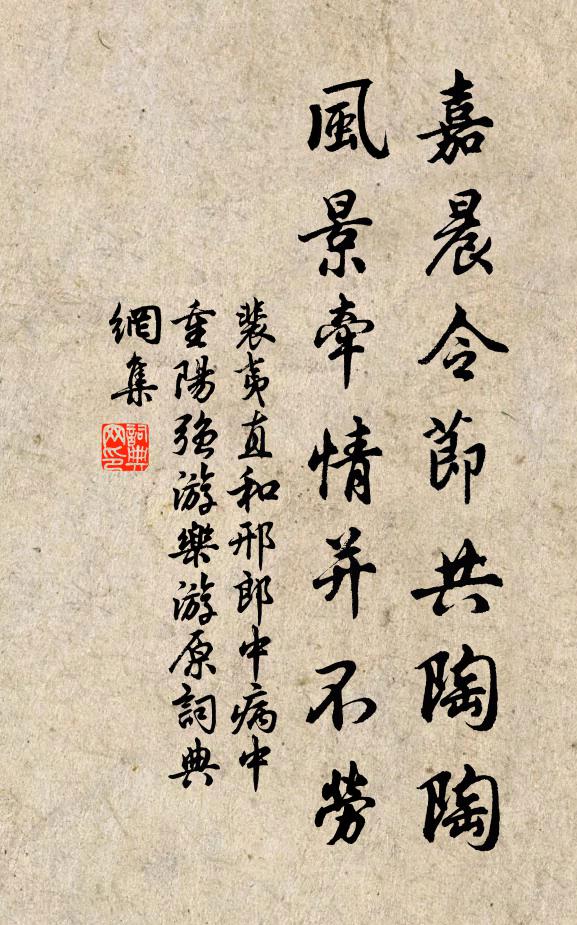 嘉晨令節共陶陶
風景牽情并不勞
裴夷直和邢郎中病中
重陽强游樂游原詞典
網集
詞典網印